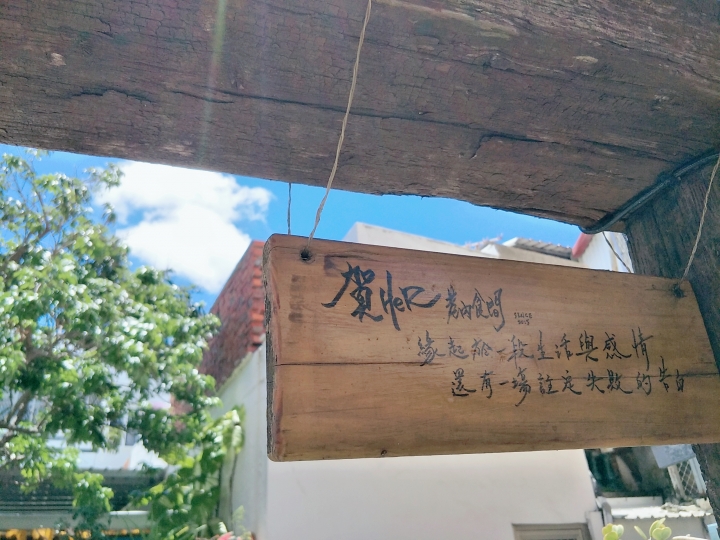 賀HeR 巷內食間
緣起於一段生活與感情
還有一場註定失敗的告白